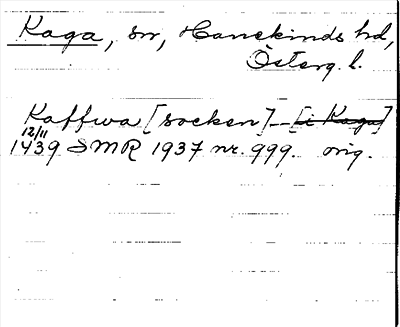 Kaga, sn, Hanekinds hd,
Österg. l.
Kaffwa [socken] - [i Kaga]
12/11
1439 SMR 1937 nr. 999. orig.